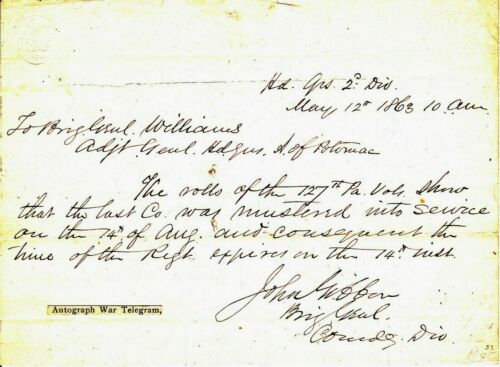 Hd. Qrs. 2d. Div.
May 12th 1863 10 am
To Brig Genl. Williams
Adjt. Genl. Hdqrs. A. of Potomac
The rolls of the 127th Pa. Vols. show
that the last Co. was mustered into service
on the 14th of Aug. and consequent the
time of the Regt. expires on the 14th inst.
John Gibbon
Brig Genl.
Comdg. Div.
Autograph War Telegram,